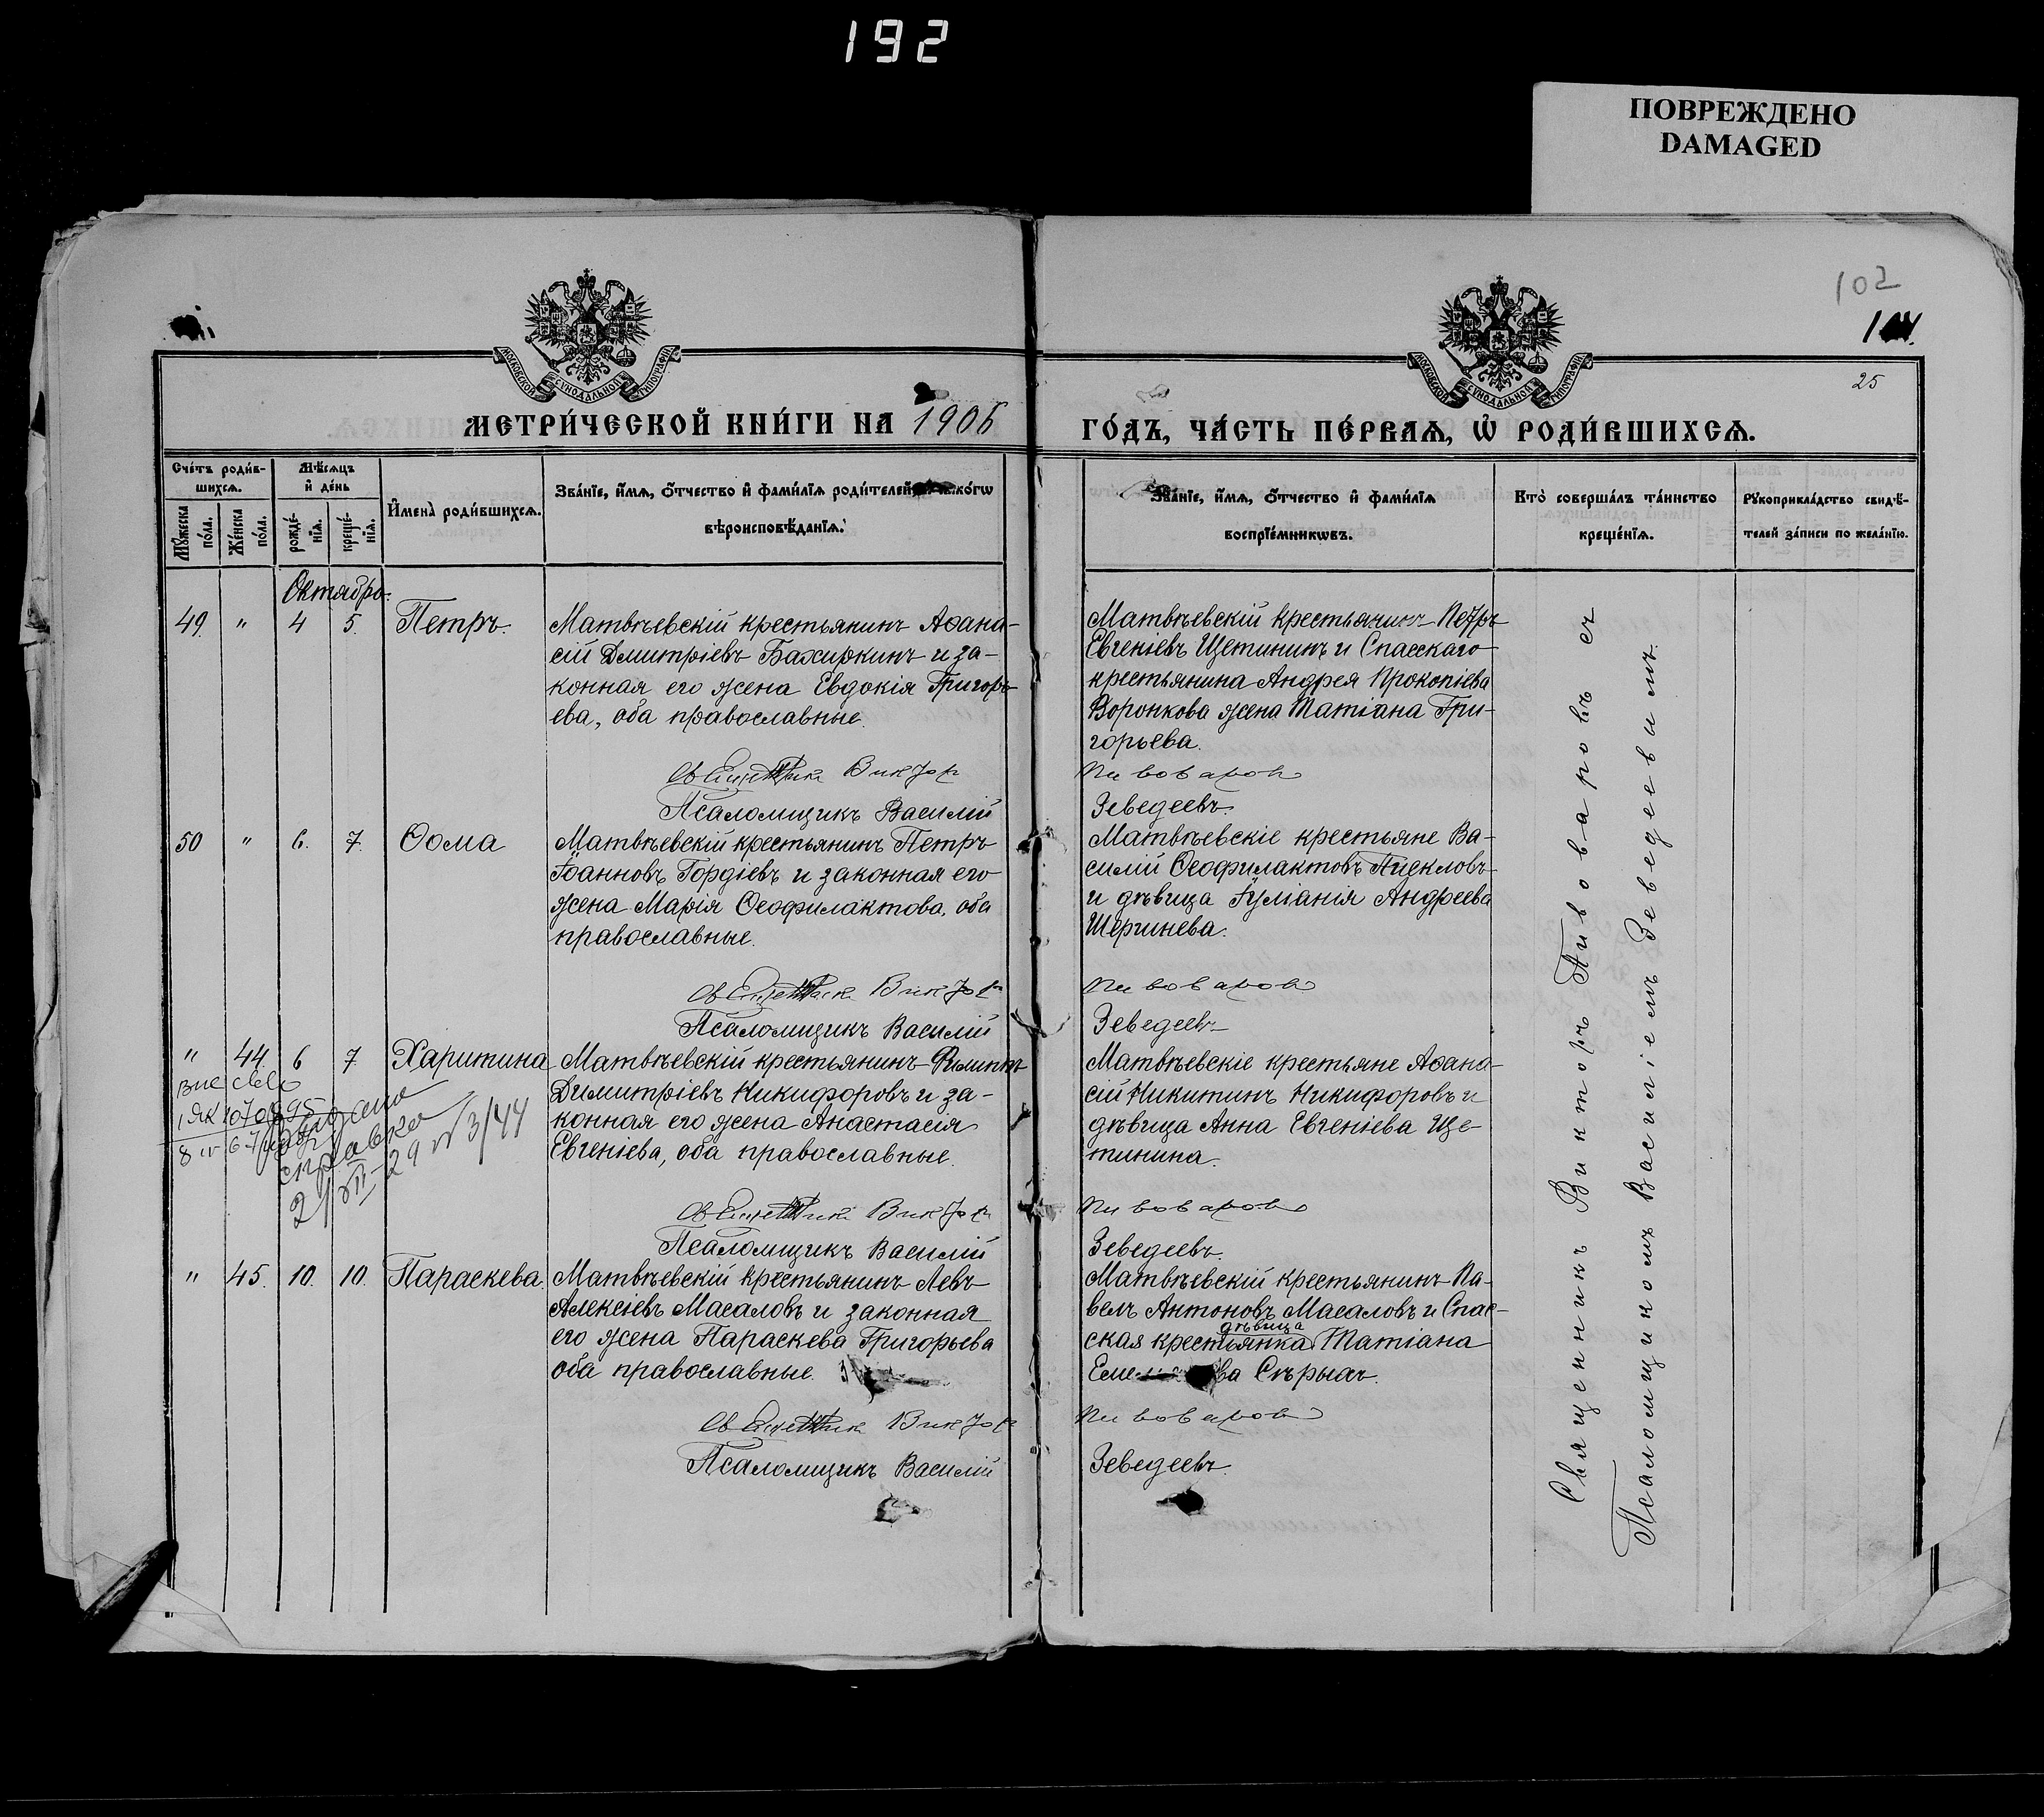 192
ПОВРЕЖДЕНО
DAMAGED
102
25
МОСКОВСКОЙ СѴНОДАЛЬНОЙ ТИПОГРАФІИ
МОСКОВСКОЙ СѴНОДАЛЬНОЙ ТИПОГРАФІИ
МЕТРИ́ЧЕСКОЙ КНИ́ГИ НА 1906
ГО́ДЪ, ЧА́СТЬ ПЕ́РВАѦ, Ѡ҆ РОДИ́ВШИХСѦ.
Сче́тъ роди́в-
шихсѧ.
Мѣ́сѧцъ
и҆ де́нь
Мꙋ́жеска
по́ла.
Же́нска
по́ла.
рожде́-
нїѧ.
креще́-
нїѧ.
И҆мена̀ роди́вшихсѧ.
Зва́нїе, и҆́мѧ, ѻ҆́тчество и҆ фами́лїѧ роди́телей, и҆ како́гѡ
вѣроисповѣ́данїѧ.
Зва́нїе, и҆́мѧ, ѻ҆́тчество и҆ фами́лїѧ
воспрїе́мникѡвъ.
Кто̀ соверша́лъ та́инство
креще́нїѧ.
Рꙋкоприкла́дство свидѣ́-
телей за́писи по жела́нїю.
Октябрь.
49. " 4 5. Петръ.
Матвѣевскій крестьянинъ Аѳана-
сій Димитріевъ Бахиркинъ и за-
конная его жена Евдокія Григорь-
ева, оба православные.
Священникъ Викторъ
Псаломщикъ Василій
Матвѣевскій крестьянинъ Петръ
Евгеніевъ Щетининъ и Спасскаго
крестьянина Андрея Прокопіева
Воронкова жена Татіана Гри-
горьева.
Пивоваровъ
Зеведеевъ.
50 " 6. 7. Ѳома
Матвѣевскій крестьянинъ Петръ
Іоанновъ Гордіевъ и законная его
жена Марія Ѳеофилактова, оба
православные.
Священникъ Викторъ
Псаломщикъ Василій
Матвѣевскіе крестьяне Ва-
силій Ѳеофилактовъ
и дѣвица Іуліанія Андреева
Пивоваровъ
Зеведеевъ
" 44. 6 7. Харитина
Матвѣевскій крестьянинъ Филиппъ
Димитріевъ Никифоровъ и за-
конная его жена Анастасія
Евгеніева, оба православные.
Священникъ Викторъ
Псаломщикъ Василій
справка
Матвѣевскіе крестьяне Аѳана-
сій Никитинъ Никифоровъ и
дѣвица Анна Евгеніева Ще-
тинина.
Пивоваровъ
Зеведеевъ.
" 45. 10. 10. Параскева.
Матвѣевскій крестьянинъ Левъ
Алексіевъ Масаловъ и законная
его жена Параскева Григорьева
оба православные.
Священникъ Викторъ
Псаломщикъ Василій
Матвѣевскій крестьянинъ Па-
велъ Антоновъ Масаловъ и Спас-
дѣвица
ская крестьянка Татіана
Сѣрыхъ.
Пивоваровъ
Зеведеевъ.
Священникъ Викторъ Пивоваровъ съ
Псаломщикомъ Василіемъ Зеведеевымъ.